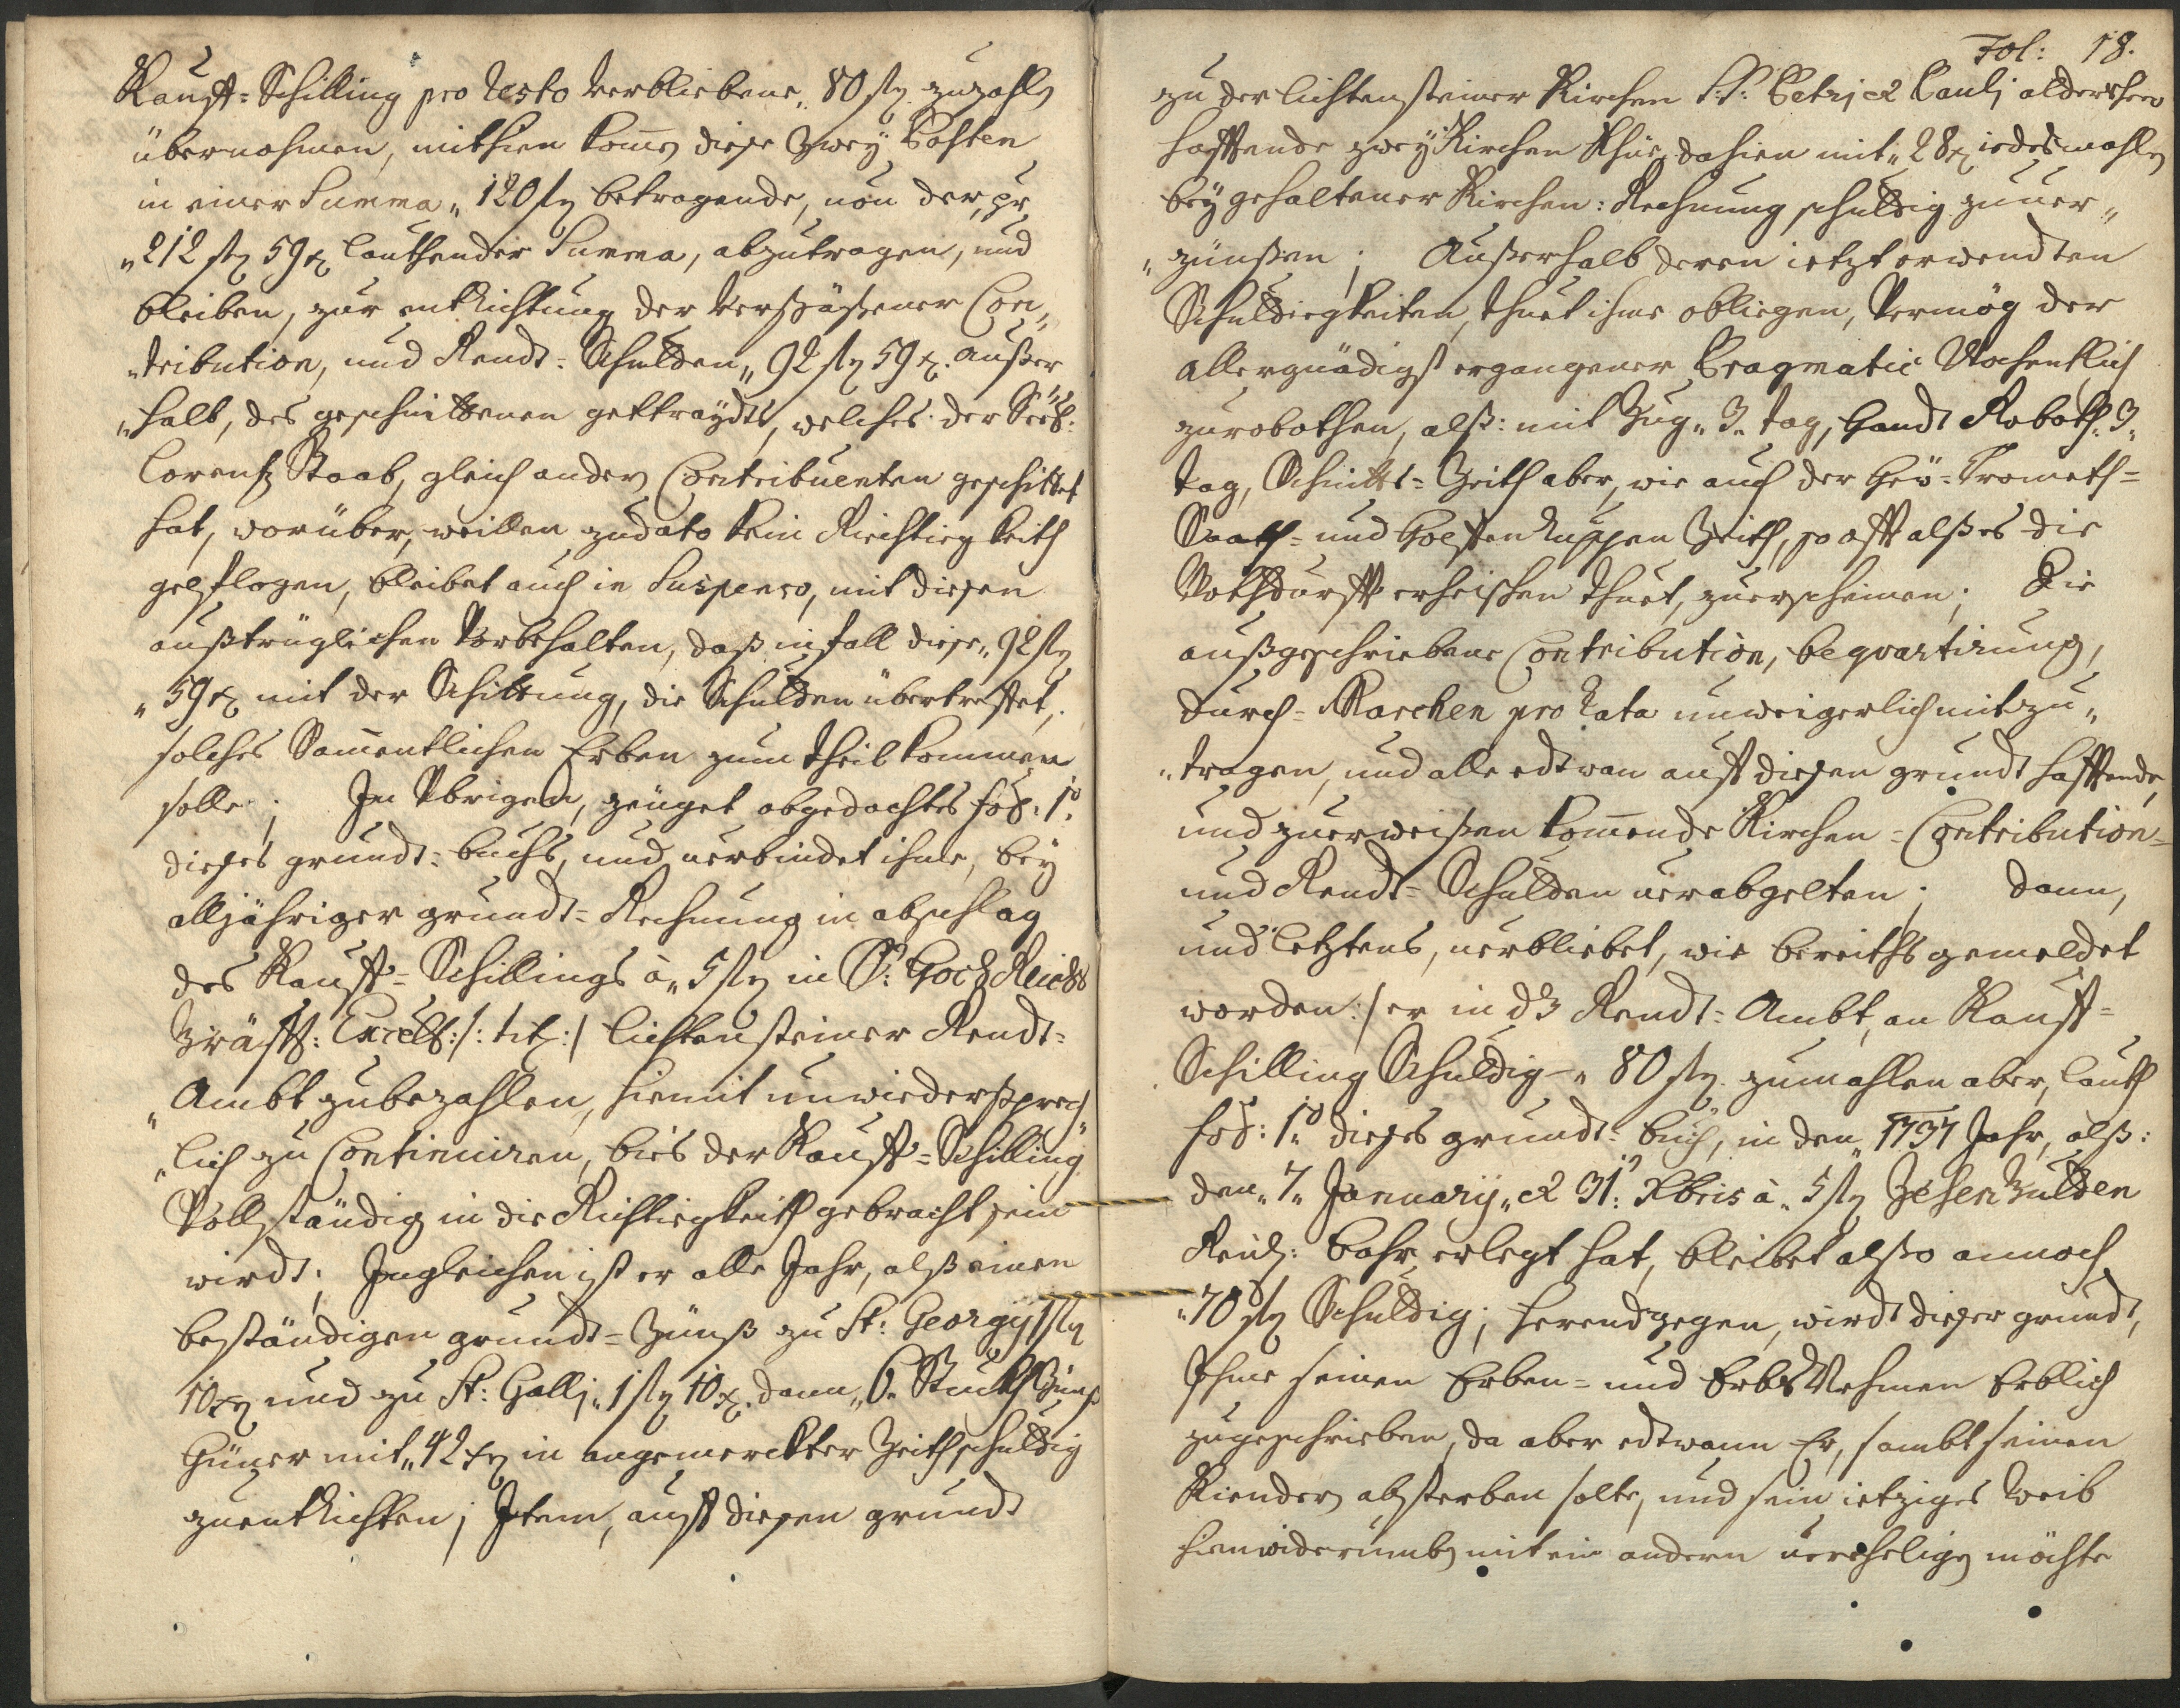 Kauff=Schilling pro Resto verbliebene „80 fl zuzahlen
übernohmen, mithien komen diese Zwey Posten
in einer Summa „120 fl betragende, von der pr
„212 fl 59 x lauthender Summa, abzutragen, und
bleiben, zur entrichtung der Con„
„tribution, und Rendt=Schulden „92 fl 59 x. außer
„halb, des geschnittenen gettraydts, welches der Seel:
Lorentz Staab, gleich andern Contribuenten geschittet
hat, worüber, weillen zudato kein Richtigkeith
gepflogen, bleibet auch in Suspenso, mit diesen
außtrüglichen Vorbehalten, daß infall diese „92 fl
„59 x mit der Schittung, die Schulden übertrefet,
solches Sammentlichen Erben zum theil kommen
solle; Im Ybrigen, zeüget obgedachtes fol: 1º
dieses grundt=buchs, und verbindet ihme, bey
alljähriger grundt=Rechnung in abschlag
des Kauff=Schillings à „5 fl in Sr: Hoch Reichs
Gräffl: Excell: /: tit: / lichtensteiner Rendt=
Ambt zubezahlen, hiemit unwiedersprech
„lich zu Continuiren, bies der Kauff=Schilling
Vollständig in die Richtigkeith gebracht sein
wirdt; Ingleichen ist er alle Jahr, alß einen
beständigen grundt=Zünß zu St: Georgy 1 fl
10 x und zu St: Gallj „1 fl 10 x. dann „6 Stuckh Zünß
Hüner mit „42 x in angemerckter Zeith schuldig
zuentrichten; Item, auff diesen grundt
Fol: 18.
zu der lichtensteiner Kirchen S:S: Petrj et Paulj
hafftende zwey Kirchen Khüe, dahien mit „28 x iedesmahlen
bey gehaltener Kirchen=Rechnung schuldig zuuer„
„zünßen; Außerhalb deren ietzt erwendten
Schuldigkeiten, thuet ihme obliegen, Vermög der
allergnädigst ergangener Pragmatic Wochentlich
zurobothen, alß: mit Zug „3„ tag, Handt Roboth „3„
tag, Schnitts=Zeith aber, wie auch der Heü=Grometh=
Saath=und Zeith, so offt alß es die
Nothdurfft erheischen thuet, zuerscheinen; Die
außgeschriebene Contribution, bequartirung,
durch=Marchen pro Rata unweigerlich mitzu„
„tragen, und alle edtwan auff diesen grundt hafftende,
und zuerweißen komende Kirchen=Contribution=
und Rendt=Schulden uerabgelten; dann,
und letztens, uerbliebet, wie bereiths gemeldet
worden:/ er in dz Rendt=Ambt, an Kauff=
Schilling Schuldig – „80 fl. zumahlen aber, lauth
fol: 1º dieses grundt=buch, in den „1737 Jahr, alß:
den „7„ January „et 31: Xbris à „5 fl Zehen Gulden
Reinl: bahr erlegt hat, bleibet alßo annoch
„70 fl Schuldig; herendgegen, wirdt dieser grundt,
Ihme seinen Erben=und ErbsNehmen Erblich
zugeschrieben, da aber edtwann Er, sambt seinen
Kiendern absterben solte, und sein ietziges Weib
hienwiderumb mit ein andern uerehelign möchte